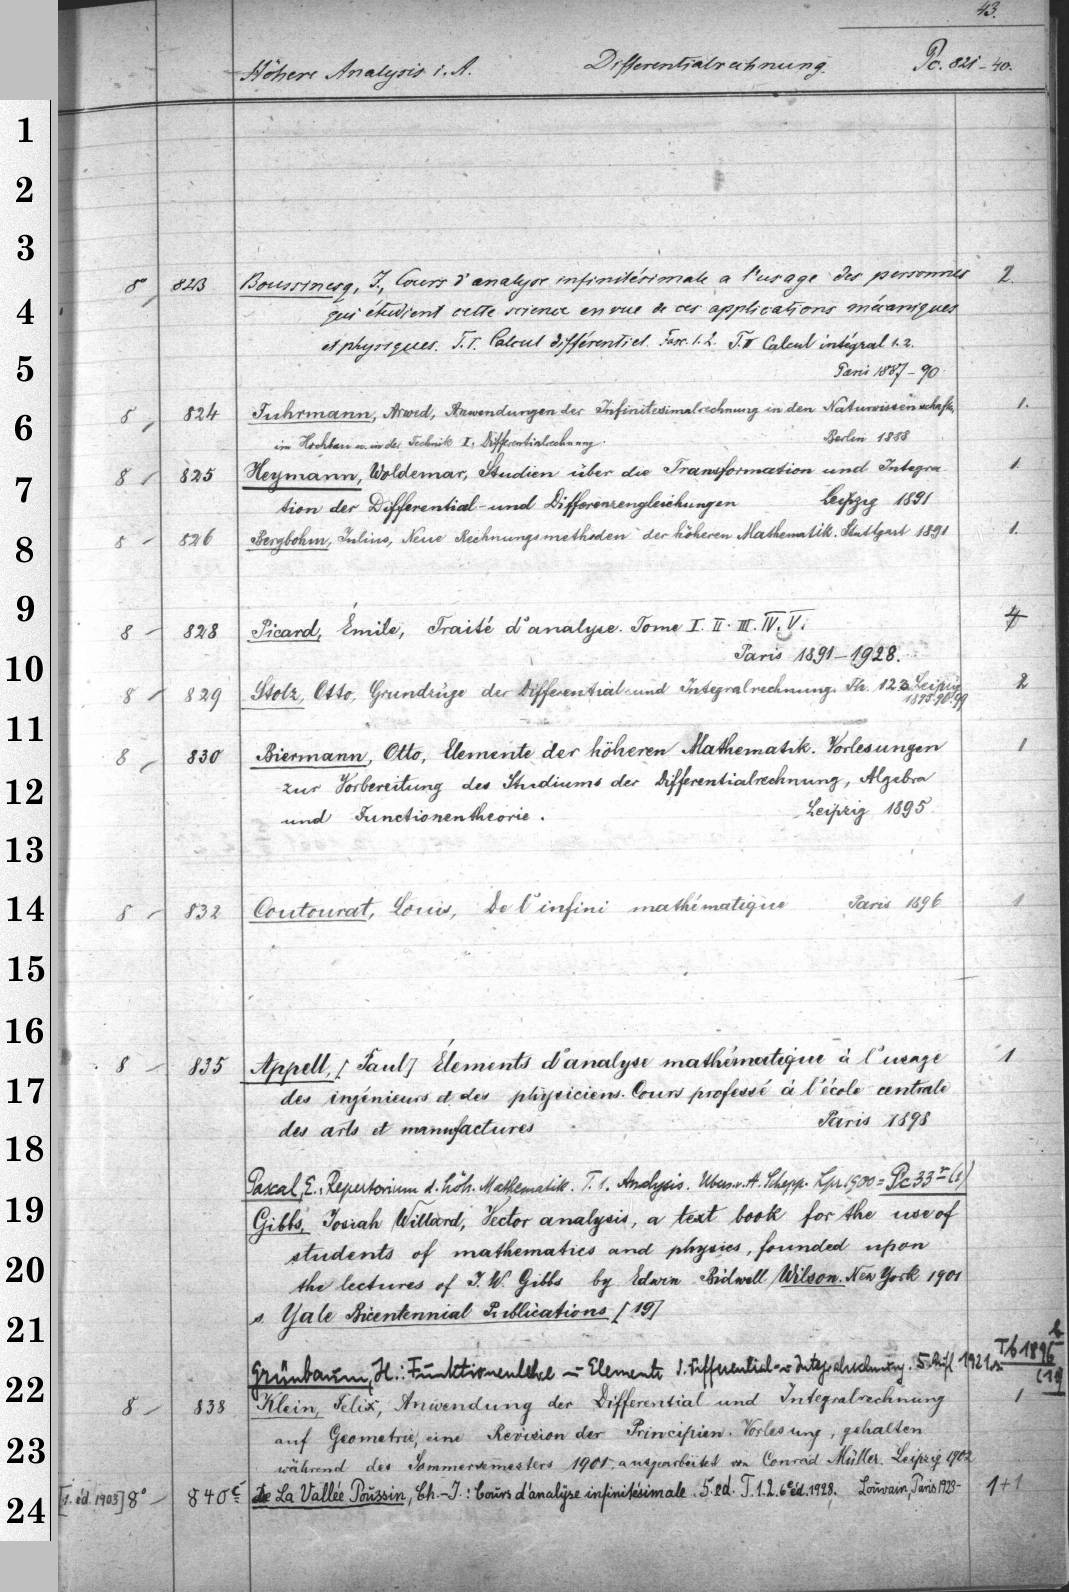 43.
Höhere Analysis i. A. Differentialrechnung. Pc. 821-40.
1
2
3
8 823 Boussinesq, J., Cours d'analyse infinitésimale a l'usage des personnes 2.
4 qui étudient cette science en vue de ces applications mécaniques
et physiques. T. I. Calcul différentiel. Fasc. 1.2. T. II Calcul intégral 1.2.
5 Paris 1887-90
8 824 Fuhrmann, Arwed, Anwendungen der Infinitesimalrechnung in den Naturwissenschaften, 1.
6 im Hochbau u. in der Technik I. Differentialrechnung. Berlin 1888
8 825 Heymann, Woldemar, Studien über die Transformation und Integra- 1
7 tion der Differential- und Differenzengleichungen Leipzig 1891
8 8 826 Bergbohm, Julius, Neue Rechnungsmethoden der höheren Mathematik. Stuttgart 1891 1.
9
8 828 Picard, Émile, Traité d'analyse. Tome I. II. III. IV. V.
10 Paris 1891-1928.
8 829 Stolz, Otto, Grundzüge der Differential und Integralrechnung. Th. 1 2 3 Leipzig 2
11
8 830 Biermann, Otto, Elemente der höheren Mathematik. Vorlesungen 1
12 zur Vorbereitung des Studiums der Differentialrechnung, Algebra
und Functionentheorie. Leipzig 1895
13
14 8 832 Coutourat, Louis, De l'infini mathématique Paris 1896 1
15
16
8 835 Appell, [Paul] Élements d'analyse mathématique à l'usage 1
17 des ingénieurs et des physiciens. Cours professé à l'école centrale
des arts et manufactures Paris 1898
18
Pascal, E.: Repertorium d. höh. Mathematik. T. 1. Analysis. Übers. v. A. Schepp. Lpz. 1900 = Pc 33 (1)
19 Gibbs, Josiah Willard, Vector analysis, a text book for the use of
students of mathematics and physics, founded upon
20 the lectures of J. W. Gibbs by Edwin Bidwell Wilson. New York 1901
21 s. Yale Bicentennial Publications [19]
Grünbaum, H.: Funktionenlehre u. Elemente d. Differential- u. Integralrechnung. 5. Aufl. 1921. s. Tb 1896
22 8 838 Klein, Felix, Anwendung der Differential und Integralrechnung 1
auf Geometrie, eine Revision der Principien. Vorlesung, gehalten
23 während des Sommersemesters 1901. ausgearbeitet von Conrad Müller. Leipzig 1902
24 [1. éd. 1903] 8° 840 c de La Vallée Poussin, Ch.-J.: Cours d'analyse infinitésimale. 5. ed. T. 1. 2. 6e éd. 1928. Louvain, Paris 1923- 1+1